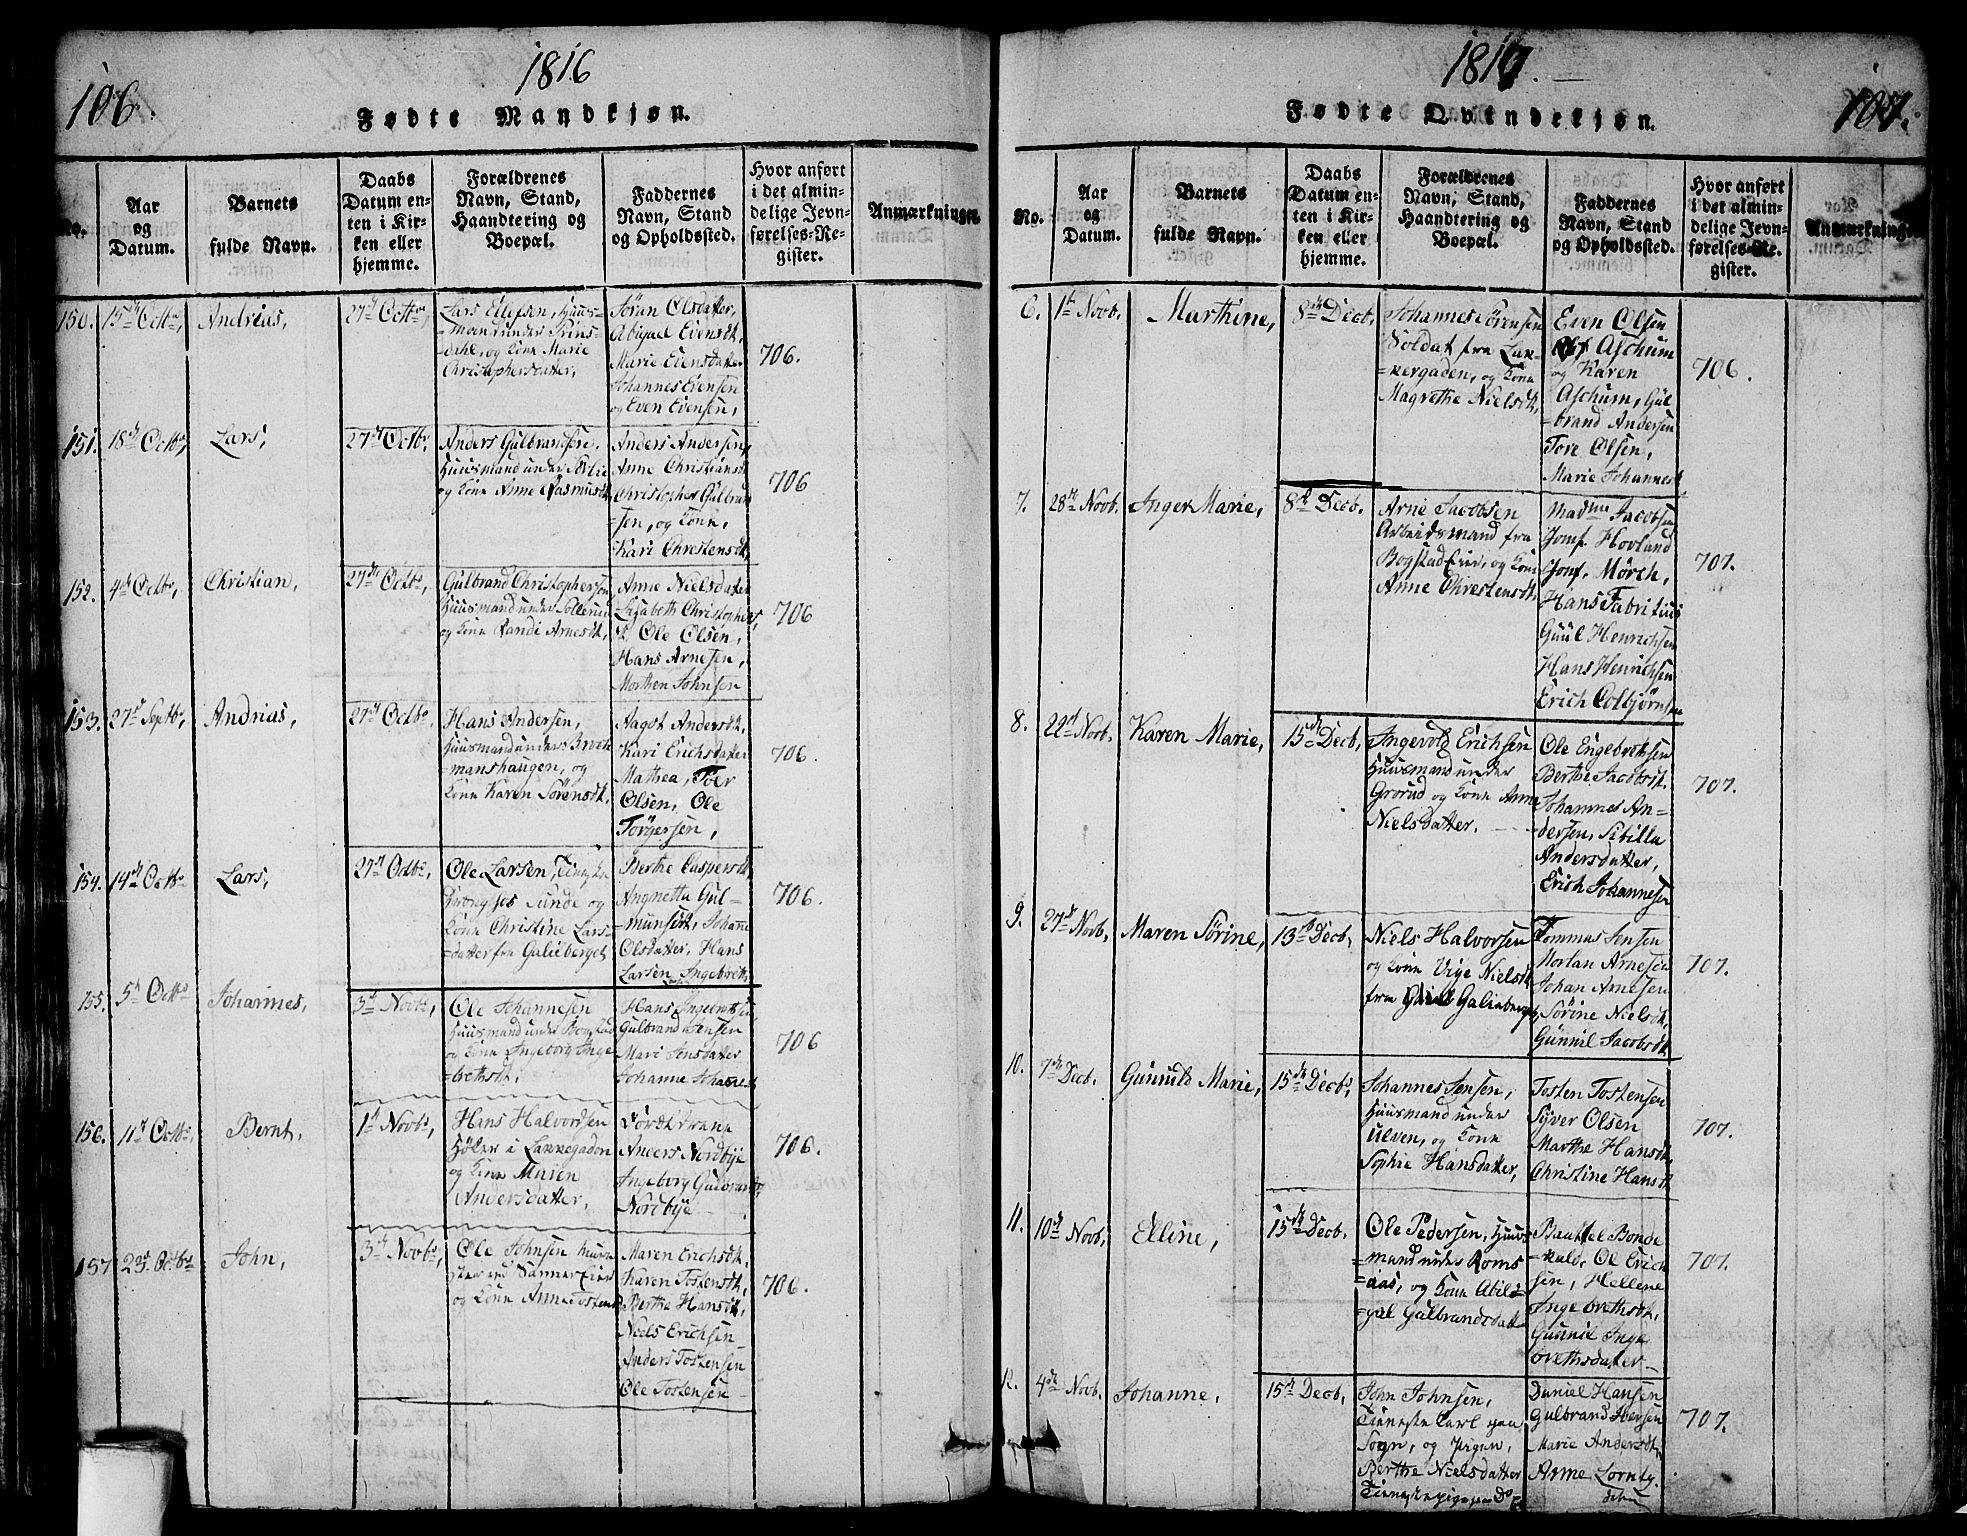 106.
1816
Fødte Mandkjøn.
No.
Aar
og
Datum.
Barnets
fulde Navn.
Daabs
Datum en-
ten i Kir-
ken eller
hjemme.
Forældrenes
Navn, Stand,
Haandtering og
Boepæl.
Faddernes
Navn, Stand
og Opholdssted.
Hvor anført
i det almin-
delige Jevn-
førelses-Re-
gister.
Anmærkninger.
150. 15de Octbr, Andrias, 27de Octbr,
Lars Ellefsen, Huus-
mand under Prins-
dahl, og Kone Marie
Christophersdatter,
Søran Olsdatter,
Abigael Evensdt,
Marie Evensdatter
Johannes Evensen
og Even Evensen,
706.
151. 18de Octbr, Lars, 27de Octbr,
Anders Gulbrandsen,
Huusmand under
og Kone Anne Rasmusdt,
Anders Andersen,
Anne Christiansdt
Christopher Gulbrand
=sen, og Kone,
Kari Christensdt,
706
152. 4de Octbr, Christian, 27de Octbr,
Gulbrand Christophersen
Huusmand under Sollerud
og Kone Randi Arnesdt,
Anne Nielsdatter
Lisabeth Christophers
dt, Ole Olsen,
Hans Arnesen,
Morthen Johnsen
706
153. 27de Septbr, Andrias, 27de Octbr,
Hans Andersen,
Huusmand under Broch
=manshaugen, og
Kone Karen Sørensdt,
Aagot Andersdt,
Kari Erichsdatter
Mathea, Toer
Olsen, Ole
Torgersen,
706.
154. 14de Octbr Lars, 27de Octbr,
Ole Larsen,
Sunde og
Kone Christine Lars-
=datter fra Galieberget
Berthe Caspersdt
Angnetta Gul-
munsdt, Johanne
Olsdatter, Hans
Larsen, Ingebreth
706.
155. 5te Octbr Johannes, 3de Novbr,
Ole Johannesen
Huusmand under Bogstad
og Kone Ingeborg Inge
=brethsdt.
Hans Ingebretsen
Gulbrand Jensen
Mari Jensdatter
Johanne Johannes
706
156. 11te Octbr, Bernt, 1te Novbr,
Hans Halvordsen
Høker i Lakkegaden
og Kone Maren
Andersdatter,
Anders Nordbye
Ingeborg Gulbrands
Nordbye
706.
157 23de Octbr John, 3de Novbr,
Ole Johnsen
og Kone Anne Tostens
Maren Erichsdt,
Karen Tostensdt,
Berthe Hansdt,
Niels Erichsen
Anders Tostensen
Ole Tostensen
706.
1817.
107.
Fødte Qvindekjøn.
No.
Aar
og
Datum.
Barnets
fulde Navn.
Daabs
Datum en-
ten i Kir-
ken eller
hjemme.
Forældrenes
Navn, Stand,
Haandtering og
Boepæl.
Faddernes
Navn, Stand
og Opholdssted.
Hvor anført
i det almin-
delige Jevn-
førelses-Re-
gister.
Anmærkninger
6. 1te Novb. Marthine, 8de Decb,
Johannes Sørensen
Soldat fra Lak-
=kergaden, og Kone
Magrethe Nielsdt,
Even Olsen
Aschum
og Karen
Aschum, Gul
brand Andersen
Tore Olsen,
Marie Johannesdt
706.
7. 28de Novb. Inger Marie, 8de Decb.
Arne Jacobsen
Arbeidsmand fra
Bogstad Eier, og Kone
Anne Chrestensdt,
Madme Jacobsen
Jomf. Hovland
Jomf. Mörch,
Hans Fabritius
Guul Henrichsen
Hans Henrichsen
Erich Colbjørnsen
707.
8. 22de Novb. Karen Marie, 15de Decb,
Ingevold Erichsen
Huusmand under
Grorud og Kone Anne
Nielsdatter.
Ole Engebrethsen
Berthe Jacobsdt.
Johannes An=
dersen, Sibilla
Andersdatter,
Erich Johannesen
707.
9. 27de Novb, Maren Sörine, 13de Decb,
Niels Halvorsen
og Kone Vige Nielsdt
fra Galieberget,
Tommas Jensen
Arnesen
Johan Arnesen
Sörine Nielsdt,
Gunnil Jacobsdt
707.
10. 7de Decb. Gunnild Marie, 15de Decbr,
Johannes Jensen,
Huusmand under
Ulven, og Kone
Sophie Hansdatter,
Tosten Tostensen
Syver Olsen
Marthe Hansdt,
Christine Hansdt
707.
11. 10de Novb, Elline, 15de Decb,
Ole Pedersen, Huus
=mand under Roms
=aas, og Kone Abi
=gal Gulbrandsdatter
Bonde
Ole Erich
sen, Hellene
Ingebrethsdt,
Gunnil Inge
brethsdatter
707.
12. 4de Novb. Johanne, 15de Decb,
John Johnsen,
Tieneste Karl paa
Sogn, og Pigen,
Berthe Nielsdatter
Tienestepige paa Do
Daniel Hansen
Gulbrand Iversen
Marie Andersdt,
Anne
707.